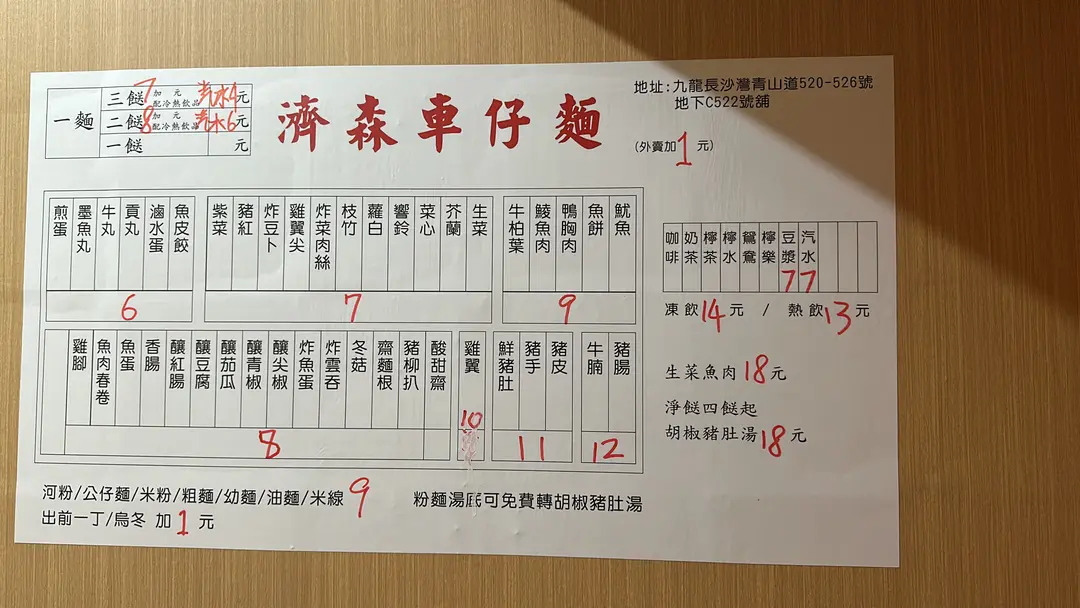 一麵
三餸 7 加 元 配冷熱飲品 汽水4元
二餸 8 加 元 配冷熱飲品 汽水6元
一餸 元
濟森車仔麵
地址:九龍長沙灣青山道520-526號
地下C522號舖
(外賣加1元)
煎蛋
墨魚丸
牛丸
貢丸
滷水蛋
魚皮餃
6
紫菜
豬紅
炸豆卜
雞翼尖
炸菜肉絲
枝竹
蘿白
響鈴
菜心
芥蘭
生菜
7
牛柏葉
鯪魚肉
鴨胸肉
魚餅
魷魚
9
雞腳
魚肉春卷
魚蛋
香腸
釀紅腸
釀豆腐
釀茄瓜
釀青椒
釀尖椒
炸魚蛋
炸雲吞
冬菇
齋麵根
豬柳扒
酸甜齋
8
雞翼
10
鮮豬肚
豬手
豬皮
11
牛腩
豬腸
12
咖啡
奶茶
檸茶
檸水
鴛鴦
檸樂
豆漿 7
汽水 7
凍飲14元 / 熱飲13元
生菜魚肉18元
淨餸四餸起
胡椒豬肚湯18元
河粉/公仔麵/米粉/粗麵/幼麵/油麵/米線 9
出前一丁/烏冬 加1元
粉麵湯底可免費轉胡椒豬肚湯